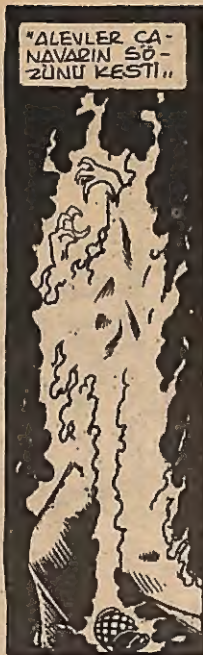 "ALEVLER CA-
NAVARIN SÖ-
ZÜNÜ KESTİ..